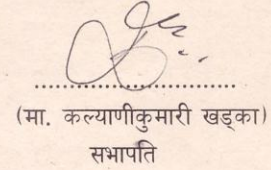 (मा. कल्याणीकुमारी खड्का)
सभापति